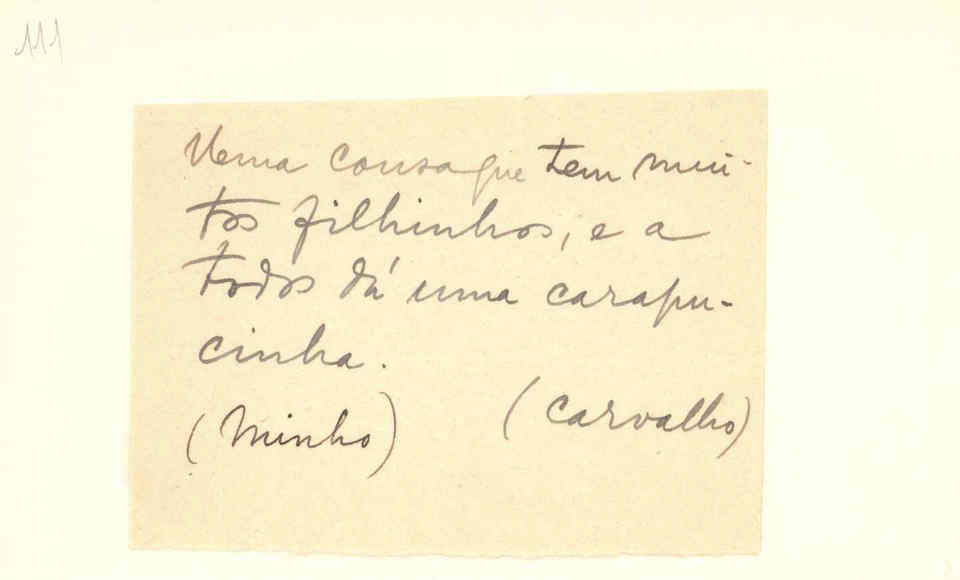 111
Uma cousa que tem mui-
tos filhinhos, e a
todos dá uma carapu-
cinha.
(Minho) (Carvalho)